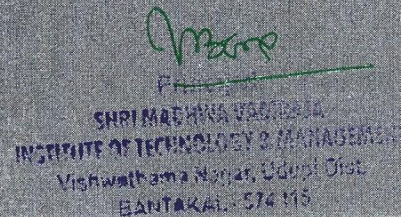 SHRI MADHWA VADIRAJA
INSTITUTE OF TECHNOLOGY & MANAGEMENT
Vishwothama Nagar, Udupi Dist.
BANTAKAL - 574 115